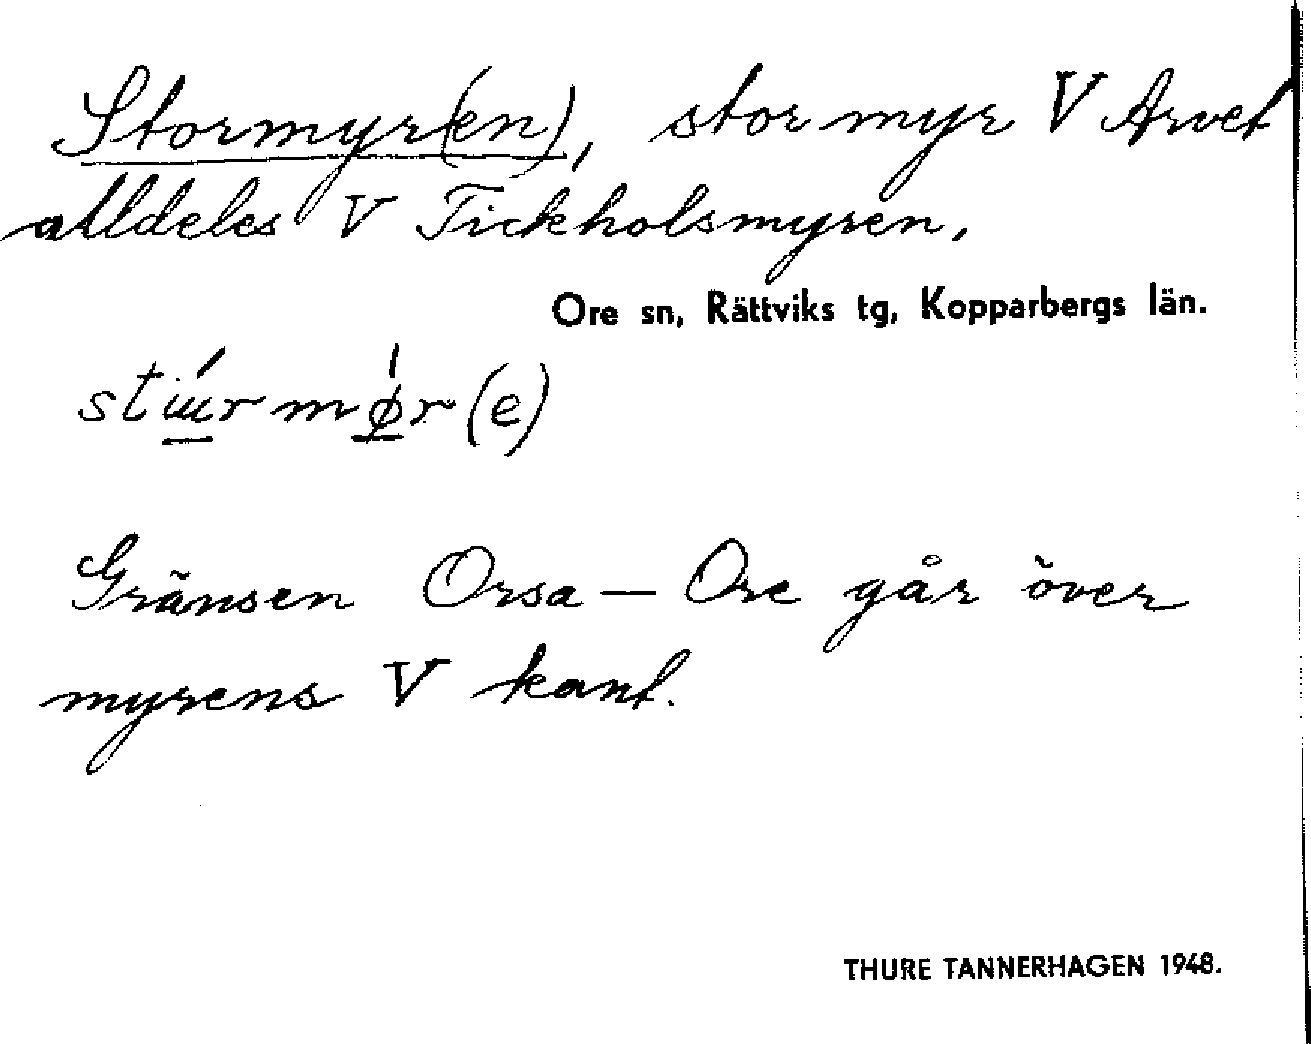 Stormyr(en), stor myr V Arvet
alldeles V Tickholsmyren.
Ore sn, Rättviks tg, Kopparbergs län.
stɯ́rmør(e)
Gränsen Orsa — Ore går över
myrens V kant.
THURE TANNERHAGEN 1948.